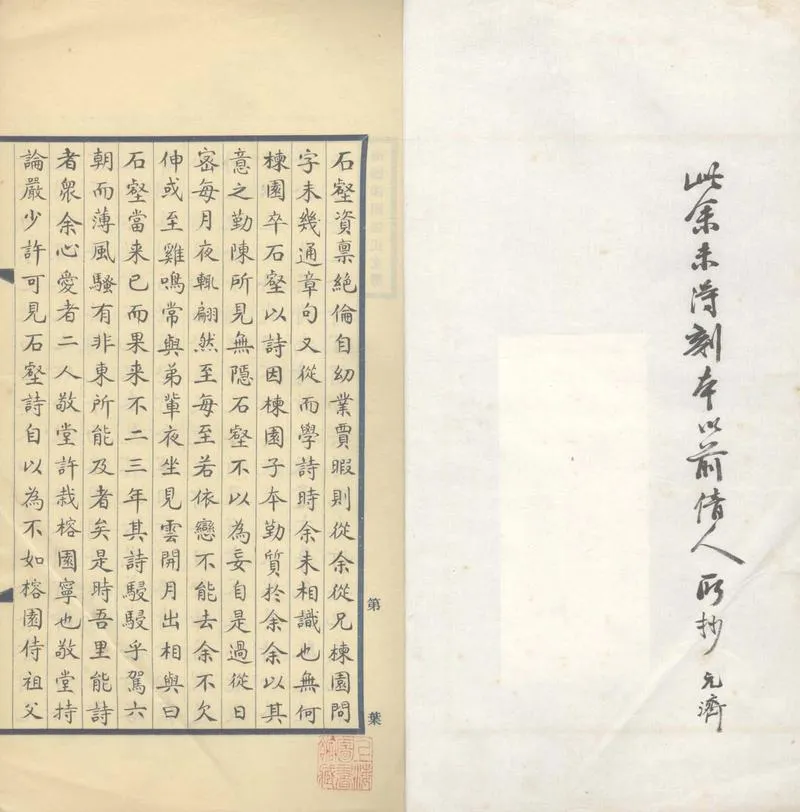 此余未得刻本以前倩人所抄 元濟
石壑資禀絕倫自幼業賈暇則從余從兄棟園問
字未幾通章句又從而學詩時余未相識也無何
棟園卒石壑以詩因棟園子本勤質於余余以其
意之勤陳所見無隱石壑不以為妄自是過從日
密每月夜輒翩然至每至若依戀不能去余不欠
伸或至雞鳴常與弟輩夜坐見雲開月出相與曰
石壑當来已而果来不二三年其詩駸駸乎駕六
朝而薄風騷有非東所能及者矣是時吾里能詩
者衆余心愛者二人敬堂許栽榕園寧也敬堂持
論嚴少許可見石壑詩自以為不如榕園侍祖父
第 葉